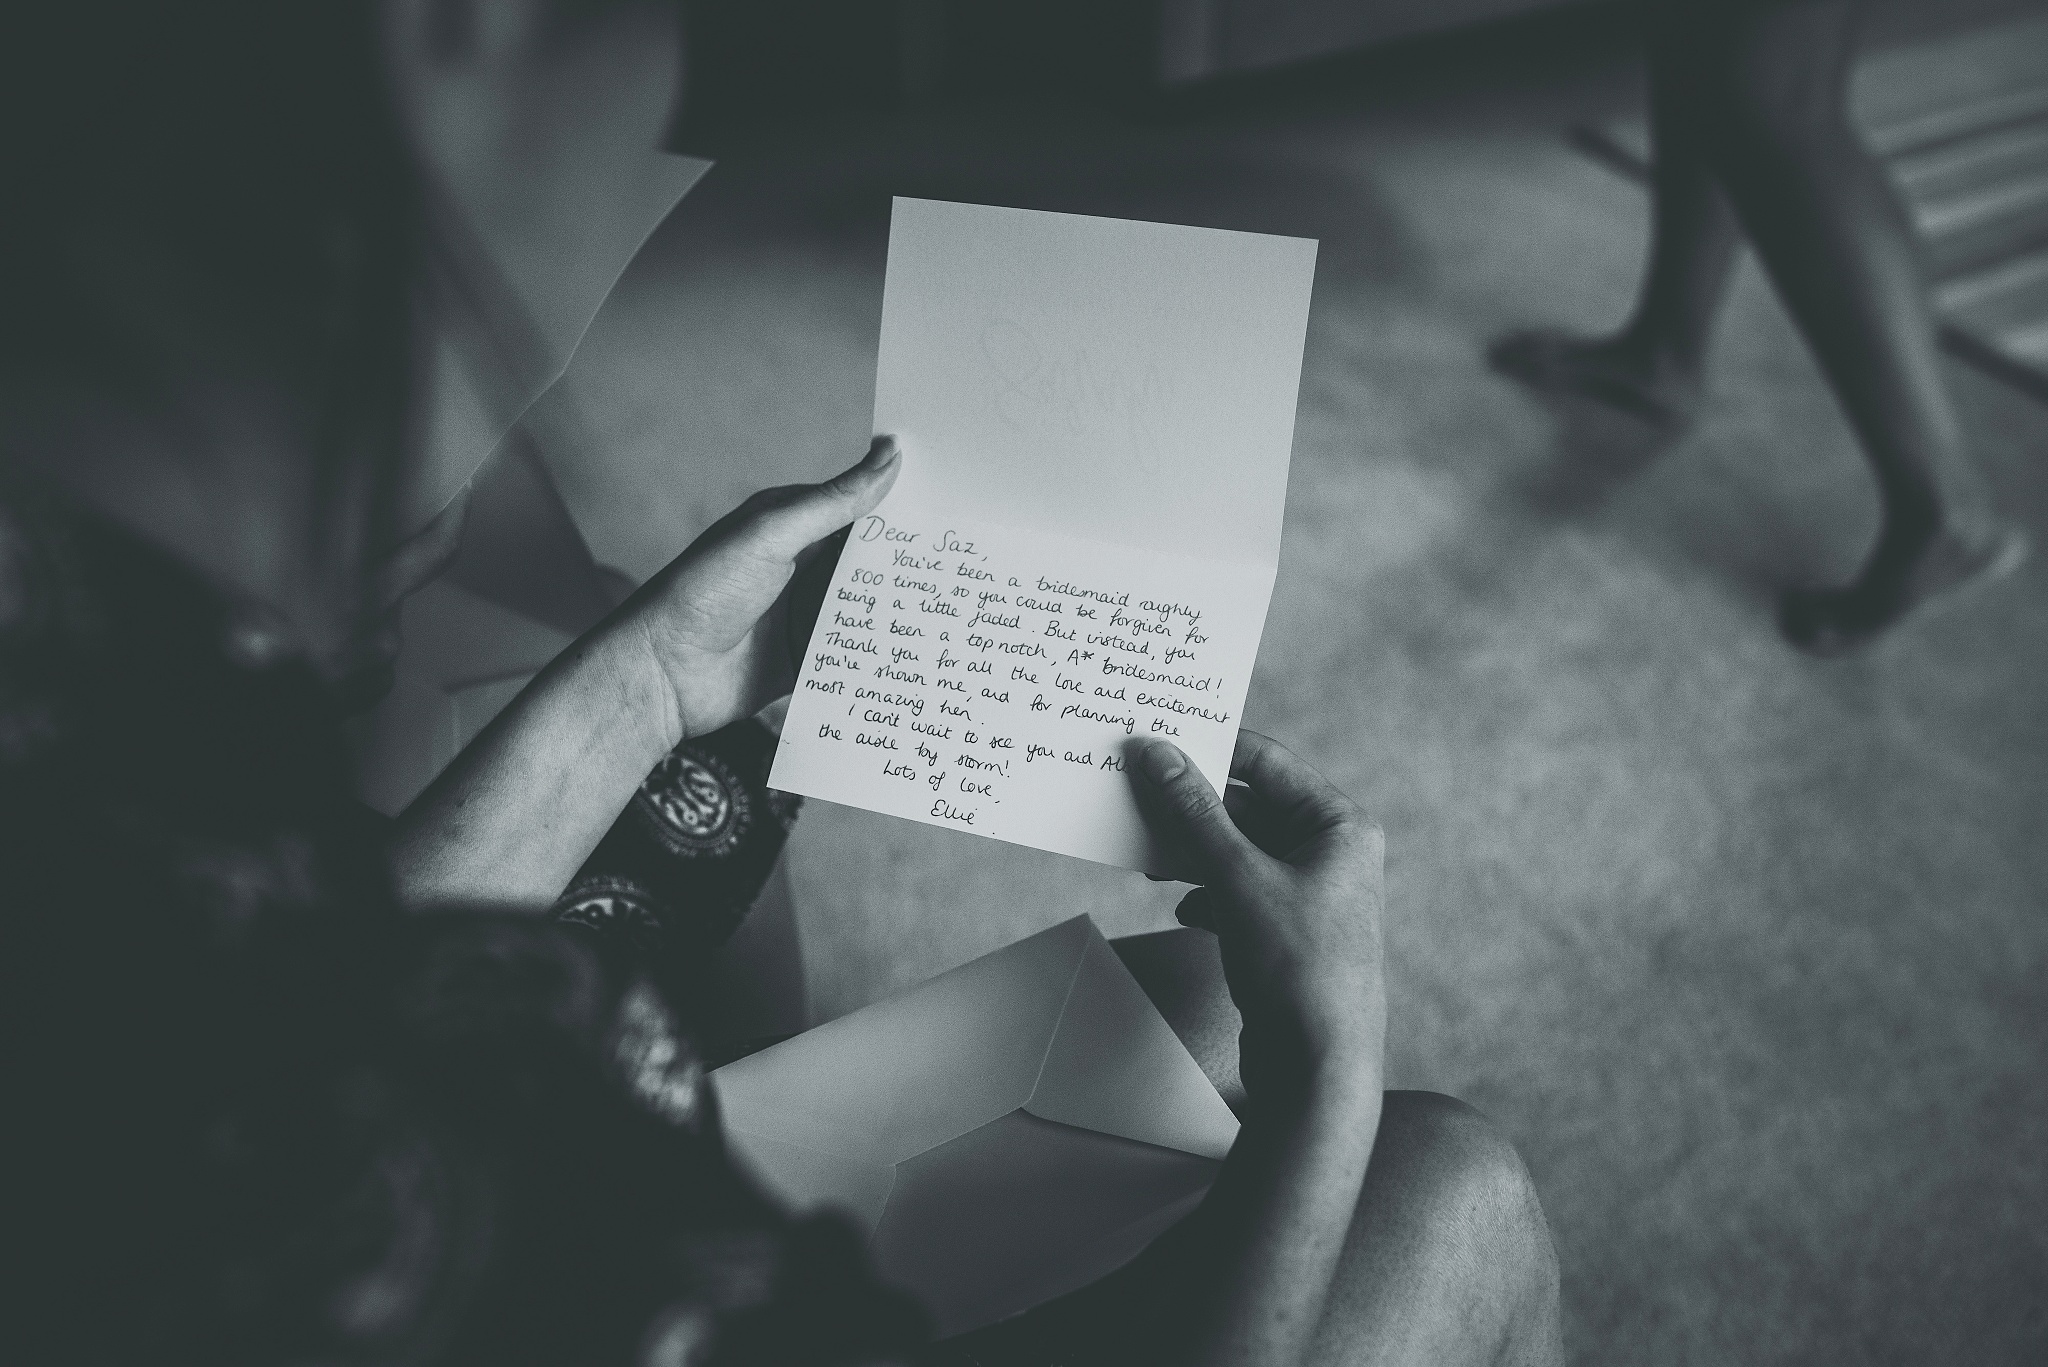 Dear Saz,
You've been a bridesmaid roughly
800 times, so you could be forgiven for
being a little jaded. But instead, you
have been a top notch, A* bridesmaid!
Thank you for all the love and excitement
you've shown me, and for planning the
most amazing hen.
I can't wait to see you and
the aisle by storm!
Lots of love,
Ellie.